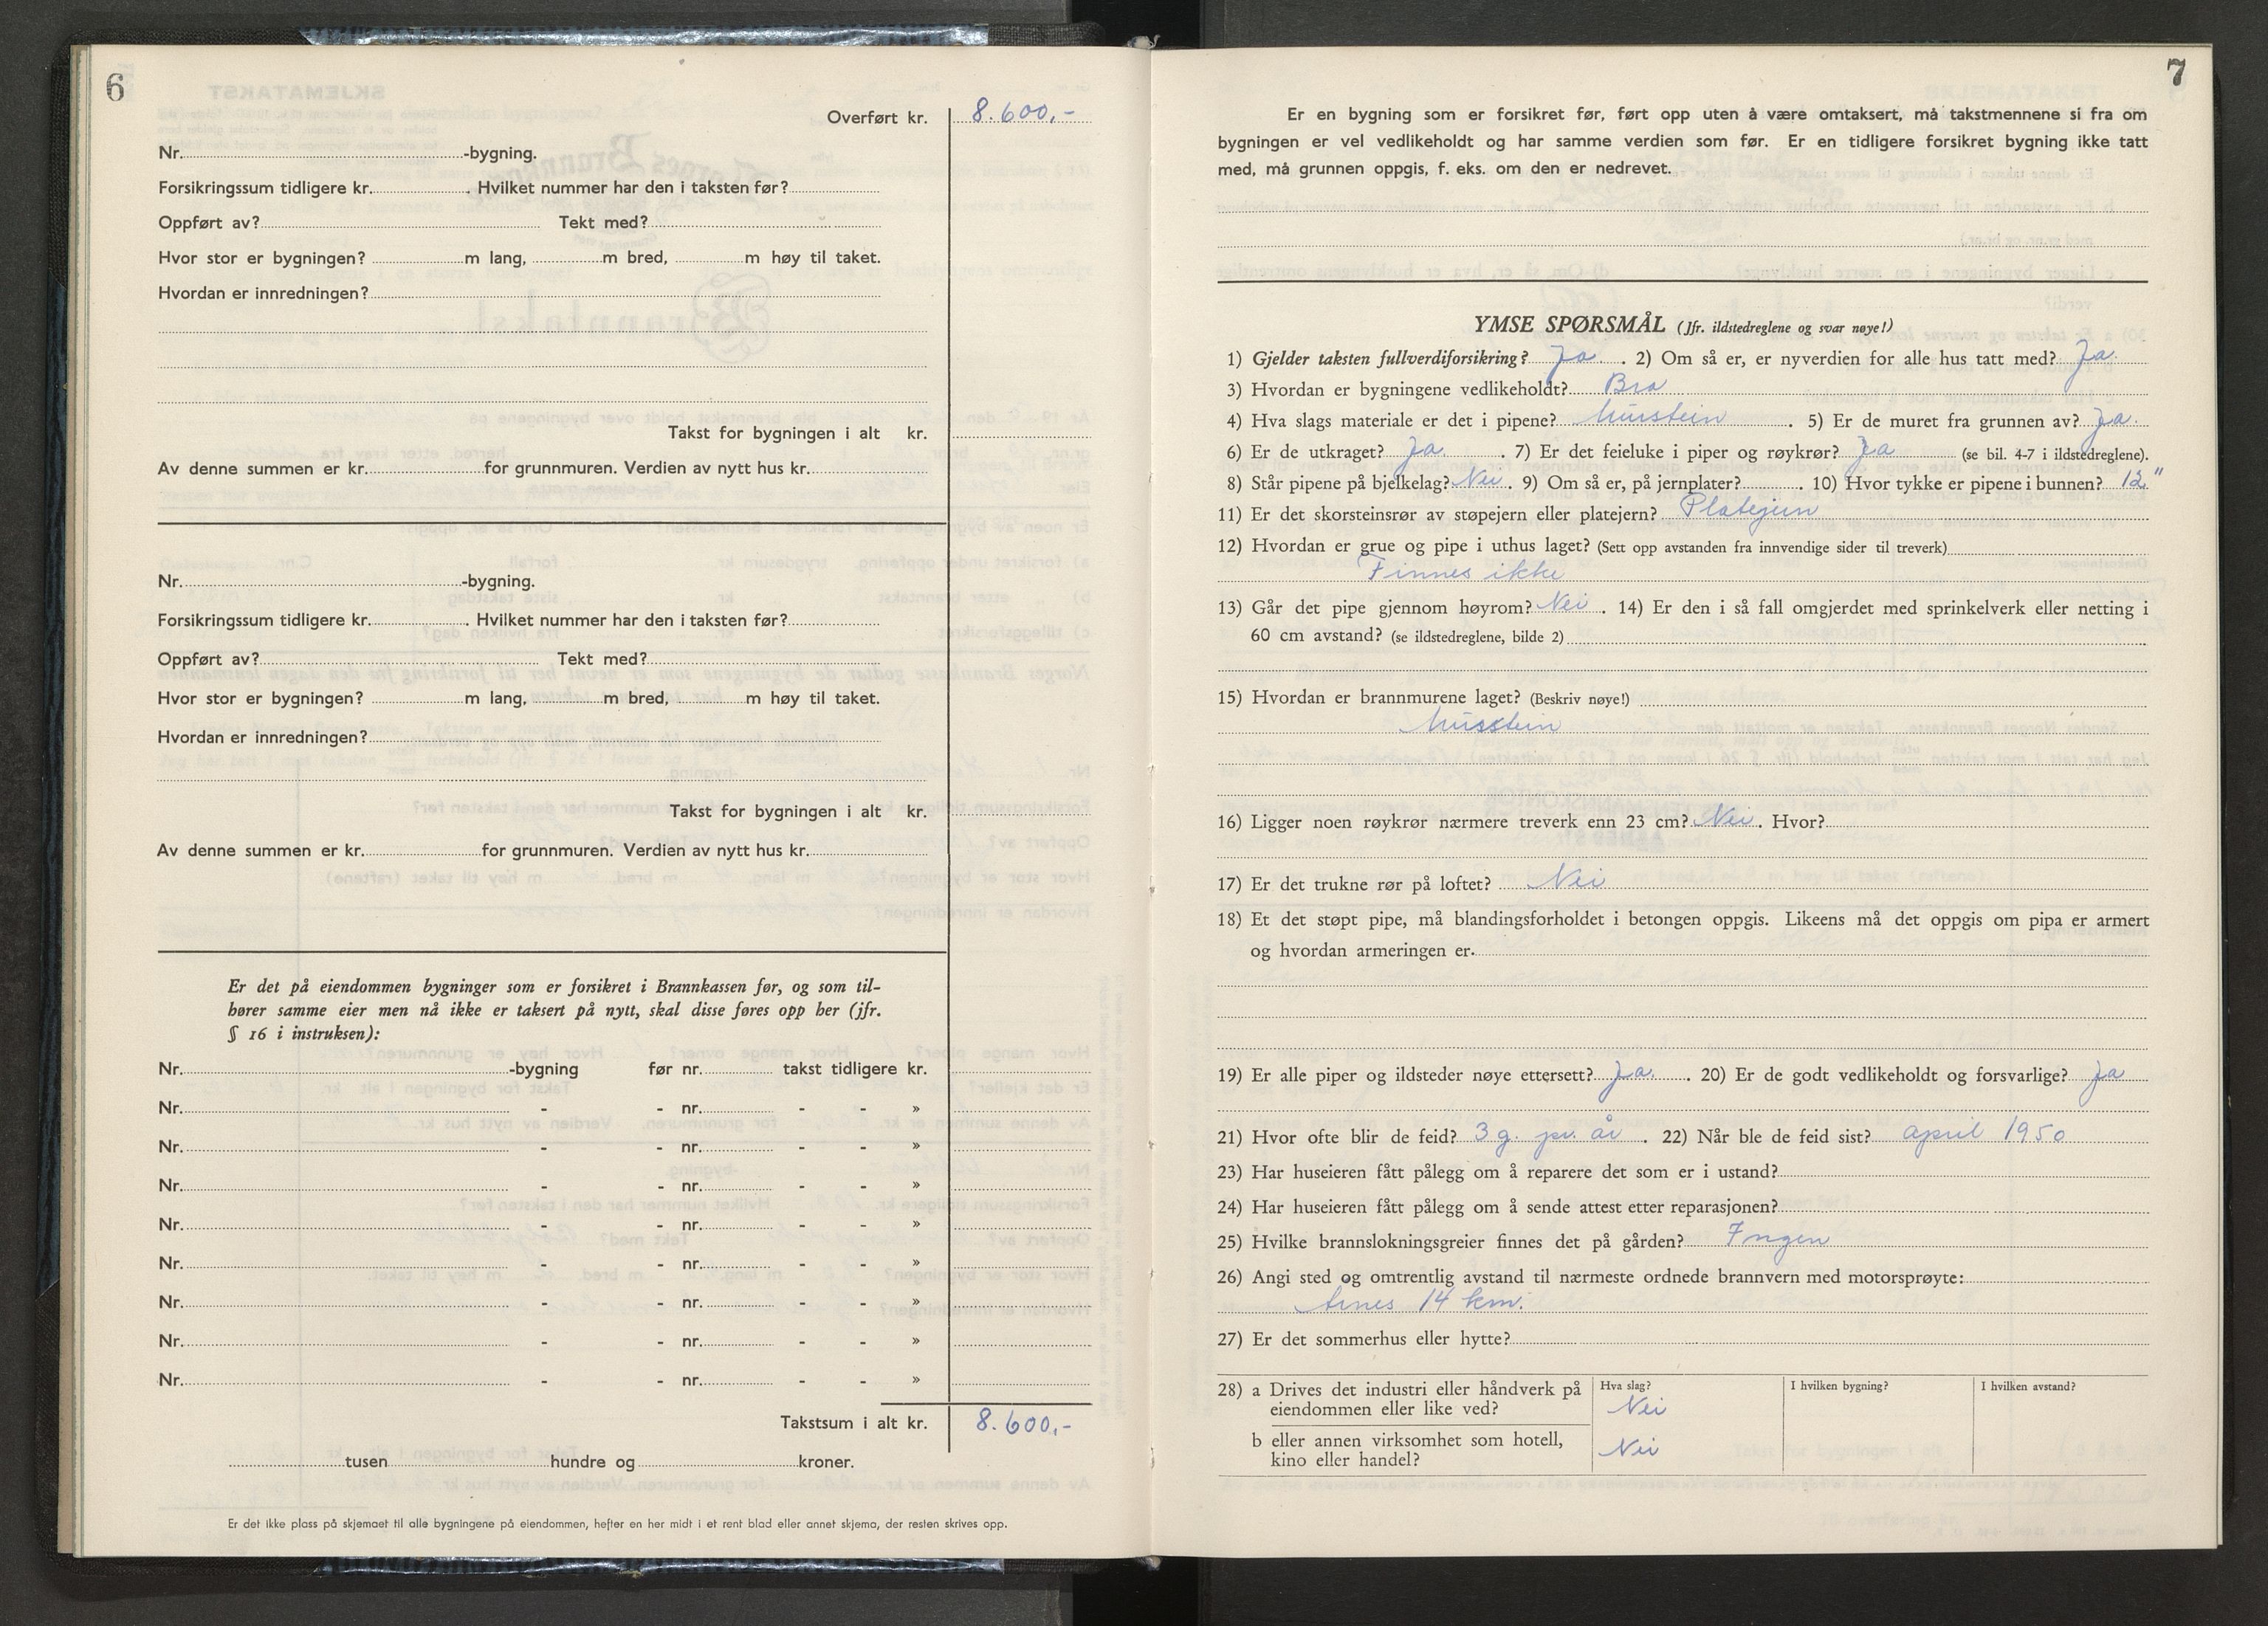 6
Overført kr. 8.600,-
Nr. -bygning.
Forsikringssum tidligere kr. . Hvilket nummer har den i taksten før?
Oppført av? Tekt med?
Hvor stor er bygningen? m lang, m bred, m høy til taket.
Hvordan er innredningen?
Takst for bygningen i alt kr.
Av denne summen er kr. for grunnmuren. Verdien av nytt hus kr.
Nr. -bygning.
Forsikringssum tidligere kr. . Hvilket nummer har den i taksten før?
Oppført av? Tekt med?
Hvor stor er bygningen? m lang, m bred, m høy til taket.
Hvordan er innredningen?
Takst for bygningen i alt kr.
Av denne summen er kr. for grunnmuren. Verdien av nytt hus kr.
Er det på eiendommen bygninger som er forsikret i Brannkassen før, og som til-
hører samme eier men nå ikke er taksert på nytt, skal disse føres opp her (jfr.
§ 16 i instruksen):
Nr. -bygning før nr. takst tidligere kr.
Nr. - - nr. - - »
Nr. - - nr. - - »
Nr. - - nr. - - »
Nr. - - nr. - - »
Nr. - - nr. - - »
Nr. - - nr. - - »
Nr. - - nr. - - »
Nr. - - nr. - - »
Takstsum i alt kr. 8.600,-
tusen hundre og kroner.
Er det ikke plass på skjemaet til alle bygningene på eiendommen, hefter en her midt i et rent blad eller annet skjema, der resten skrives opp.
7
Er en bygning som er forsikret før, ført opp uten å være omtaksert, må takstmennene si fra om
bygningen er vel vedlikeholdt og har samme verdien som før. Er en tidligere forsikret bygning ikke tatt
med, må grunnen oppgis, f. eks. om den er nedrevet.
YMSE SPØRSMÅL (Jfr. ildstedreglene og svar nøye!)
1) Gjelder taksten fullverdiforsikring? Ja . 2) Om så er, er nyverdien for alle hus tatt med? Ja.
3) Hvordan er bygningene vedlikeholdt? Bra
4) Hva slags materiale er det i pipene? Murstein . 5) Er de muret fra grunnen av? Ja.
6) Er de utkraget? Ja. . 7) Er det feieluke i piper og røykrør? Ja (se bil. 4-7 i ildstedreglene).
8) Står pipene på bjelkelag? Nei . 9) Om så er, på jernplater? . 10) Hvor tykke er pipene i bunnen? 12"
11) Er det skorsteinsrør av støpejern eller platejern? Platejern
12) Hvordan er grue og pipe i uthus laget? (Sett opp avstanden fra innvendige sider til treverk)
Finnes ikke
13) Går det pipe gjennom høyrom? Nei . 14) Er den i så fall omgjerdet med sprinkelverk eller netting i
60 cm avstand? (se ildstedreglene, bilde 2)
15) Hvordan er brannmurene laget? (Beskriv nøye!)
Murstein
16) Ligger noen røykrør nærmere treverk enn 23 cm? Nei . Hvor?
17) Er det trukne rør på loftet? Nei
18) Et det støpt pipe, må blandingsforholdet i betongen oppgis. Likeens må det oppgis om pipa er armert
og hvordan armeringen er.
19) Er alle piper og ildsteder nøye ettersett? Ja. . 20) Er de godt vedlikeholdt og forsvarlige? Ja
21) Hvor ofte blir de feid? 3 g. pr. år . 22) Når ble de feid sist? april 1950
23) Har huseieren fått pålegg om å reparere det som er i ustand?
24) Har huseieren fått pålegg om å sende attest etter reparasjonen?
25) Hvilke brannslokningsgreier finnes det på gården? Ingen
26) Angi sted og omtrentlig avstand til nærmeste ordnede brannvern med motorsprøyte:
Årnes 14 km.
27) Er det sommerhus eller hytte?
28) a Drives det industri eller håndverk på Hva slag? I hvilken bygning? I hvilken avstand?
eiendommen eller like ved? Nei
b eller annen virksomhet som hotell, Nei
kino eller handel?